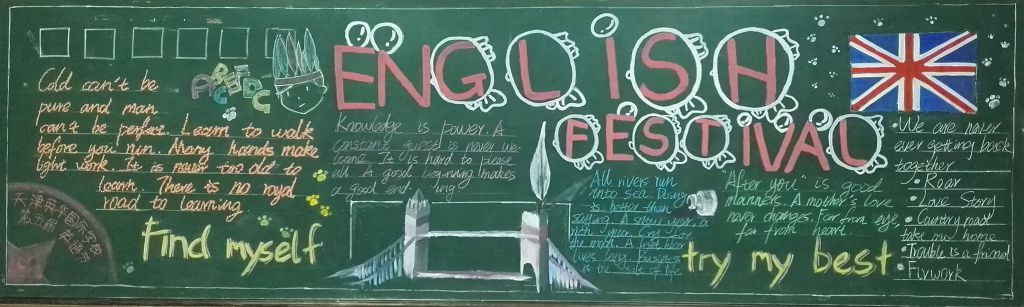 ENGLISH
FESTIVAL
Cold can't be
pure and man
can't be perfect. Learn to walk
before you run. Many hands make
light work. It is never too old to
learn. There is no royal
road to learning.
Find myself
Knowledge is power. A
constant guest is never we-
lcome. It is hard to please
all. A good beginning makes
a good end
All rivers run
into sea. Doing
is better than
saying. A snow year, a
rich year.
the moth. A
lives long. Business
is the salt of life.
"After you" is good
manners. A mother's love
never changes. Far from eye,
far from heart
try my best
•We are never
ever getting back
together
•Roar
•Love Story
•Country road
take me home
•Trouble is a friend
•Firwork